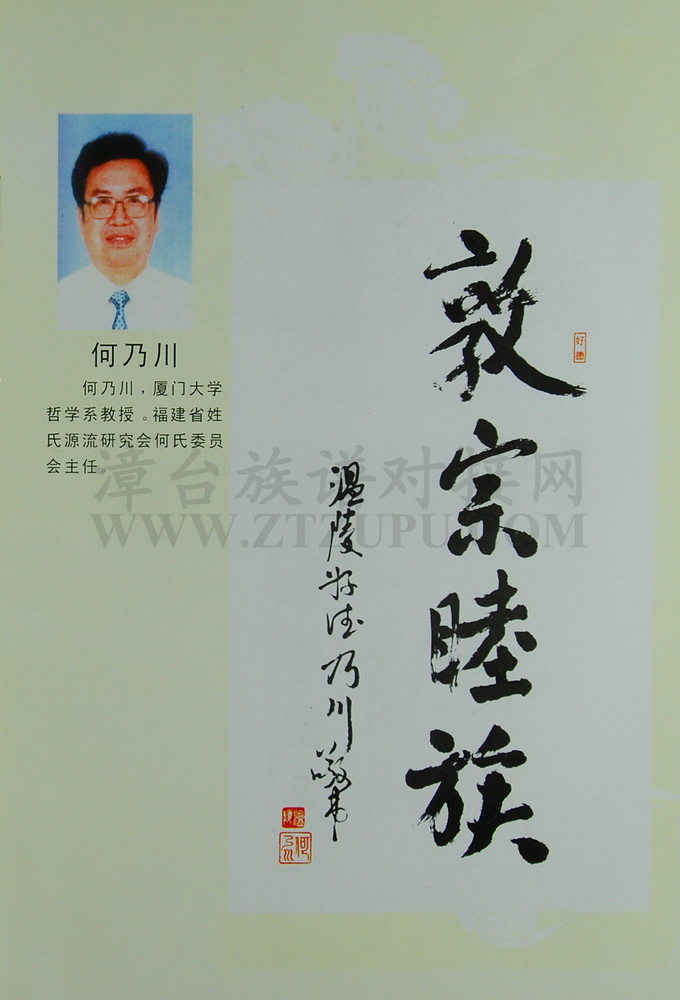 何乃川
何乃川，厦门大学
哲学系教授。福建省姓
氏源流研究会何氏委员
会主任。
敦宗睦族
好德
温陵好德乃川敬书
漳台族谱对接网
WWW.ZTZUPU.COM